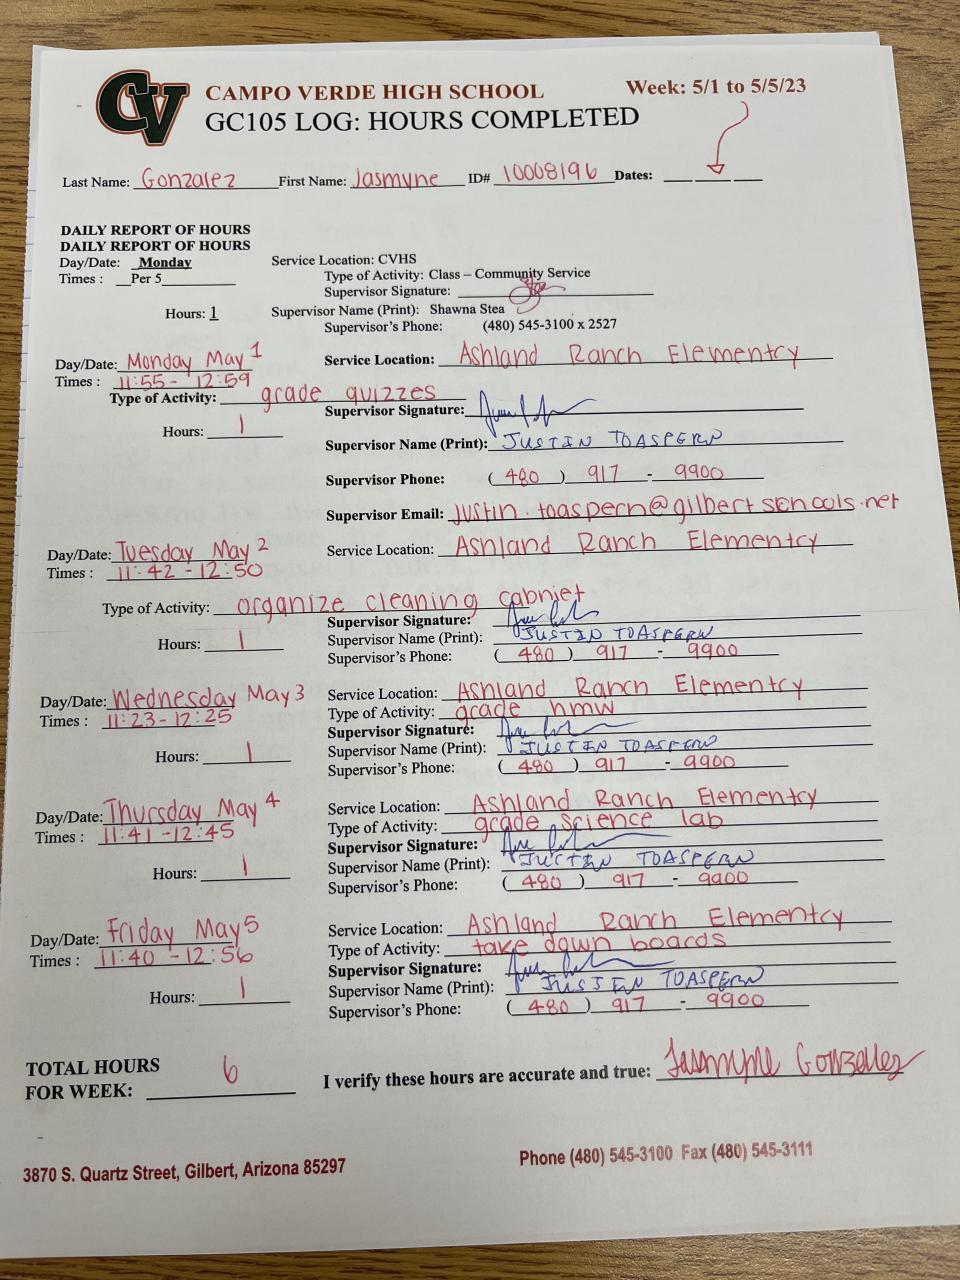 CV
CAMPO VERDE HIGH SCHOOL Week: 5/1 to 5/5/23
GC105 LOG: HOURS COMPLETED
Last Name: Gonzalez First Name: Jasmyne ID# 10008196 Dates:
DAILY REPORT OF HOURS
DAILY REPORT OF HOURS
Day/Date: Monday Service Location: CVHS
Times : Per 5 Type of Activity: Class – Community Service
Supervisor Signature:
Hours: 1 Supervisor Name (Print): Shawna Stea
Supervisor's Phone: (480) 545-3100 x 2527
Day/Date: Monday May 1 Service Location: Ashland Ranch Elementry
Times : 11:55 - 12:59
Type of Activity: grade quizzes
Supervisor Signature:
Hours: 1
Supervisor Name (Print): JUSTIN TOASPERN
Supervisor Phone: (480) 917 - 9900
Supervisor Email: justin.toaspern@gilbertschools.net
Day/Date: Tuesday May 2 Service Location: Ashland Ranch Elementry
Times : 11:42 - 12:50
Type of Activity: organize cleaning cabniet
Supervisor Signature:
Hours: 1 Supervisor Name (Print): JUSTIN TOASPERN
Supervisor's Phone: (480) 917 - 9900
Day/Date: Wednesday May 3 Service Location: Ashland Ranch Elementry
Times : 11:23 - 12:25 Type of Activity: grade hmw
Supervisor Signature:
Hours: 1 Supervisor Name (Print): JUSTIN TOASPERN
Supervisor's Phone: (480) 917 - 9900
Day/Date: Thursday May 4 Service Location: Ashland Ranch Elementry
Times : 11:41 - 12:45 Type of Activity: grade science lab
Supervisor Signature:
Hours: 1 Supervisor Name (Print): JUSTIN TOASPERN
Supervisor's Phone: (480) 917 - 9900
Day/Date: Friday May 5 Service Location: Ashland Ranch Elementry
Times : 11:40 - 12:56 Type of Activity: take down boards
Supervisor Signature:
Hours: 1 Supervisor Name (Print): JUSTIN TOASPERN
Supervisor's Phone: (480) 917 - 9900
TOTAL HOURS
FOR WEEK: 6 I verify these hours are accurate and true: Jasmyne Gonzalez
3870 S. Quartz Street, Gilbert, Arizona 85297 Phone (480) 545-3100 Fax (480) 545-3111